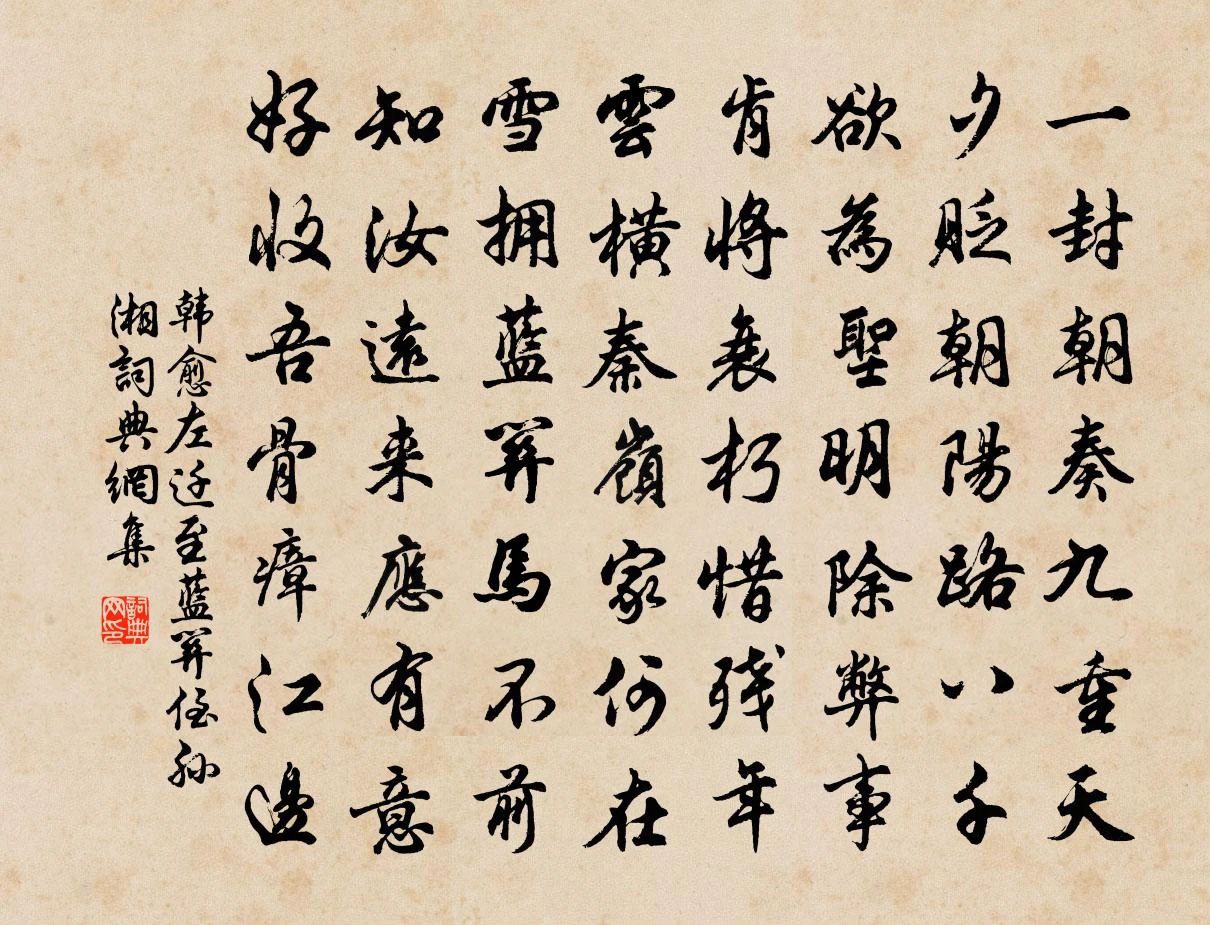 一封朝奏九重天
夕貶朝陽路八千
欲為聖明除弊事
肯將衰朽惜殘年
雲橫秦嶺家何在
雪拥藍關馬不前
知汝遠来應有意
好收吾骨瘴江邊
韩愈左迁至藍關侄孙
湘詞典網集
詞典网印